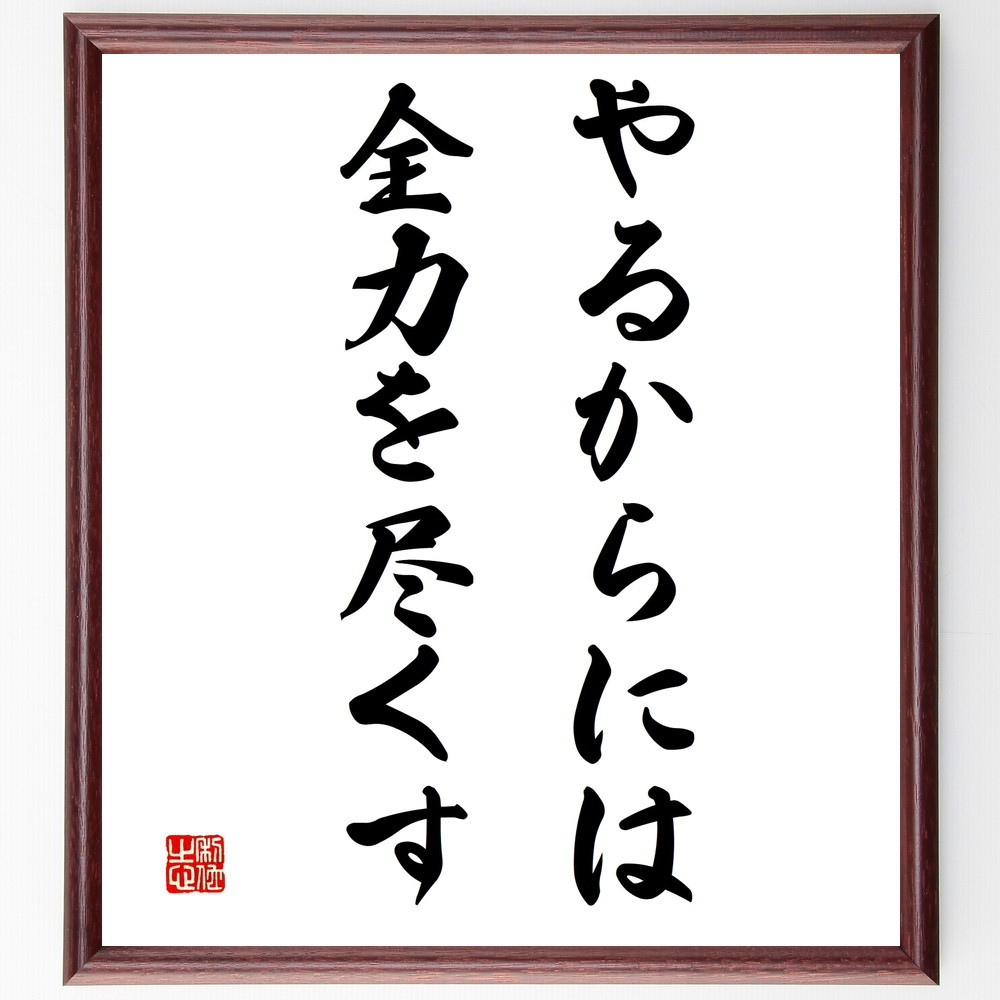 やるからには
全力を尽くす